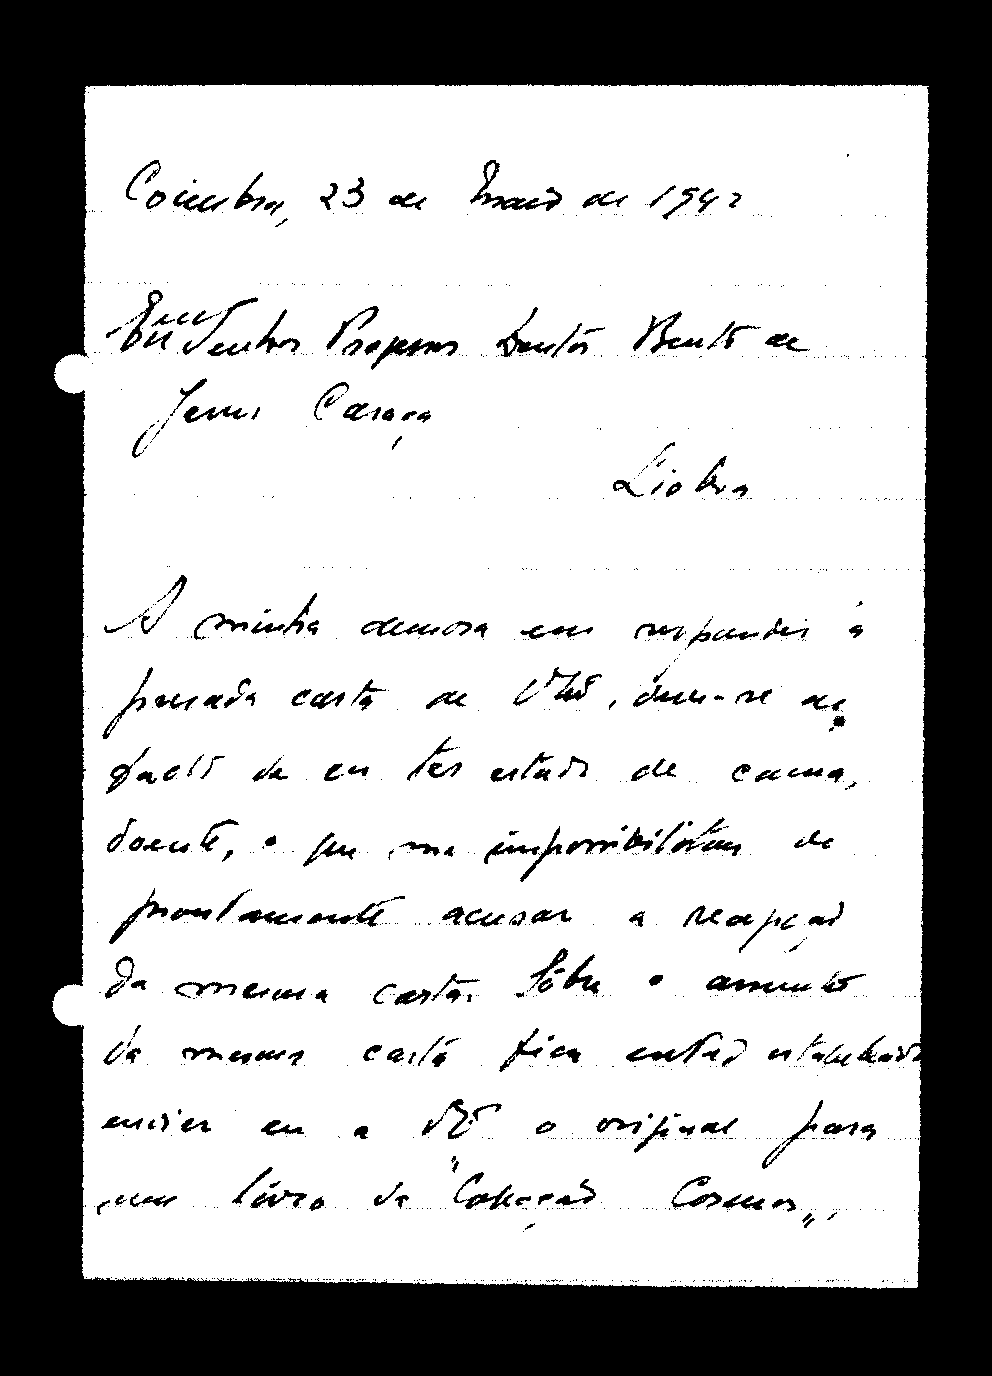 Coimbra, 23 de Maio de 1942
Exmo Senhor Professor Doutor Bento de
Jesus Caraça
Lisboa
A minha demora em responder à
presada carta de V. , deve-se ao
facto de eu ter estado de cama,
doente, o que me impossibilitou de
prontamente acusar a recepção
da mesma carta. Sôbre o assunto
da mesma carta fica então estabelecido
enviar eu a o original para
um livro da "Colecção Cosmos",